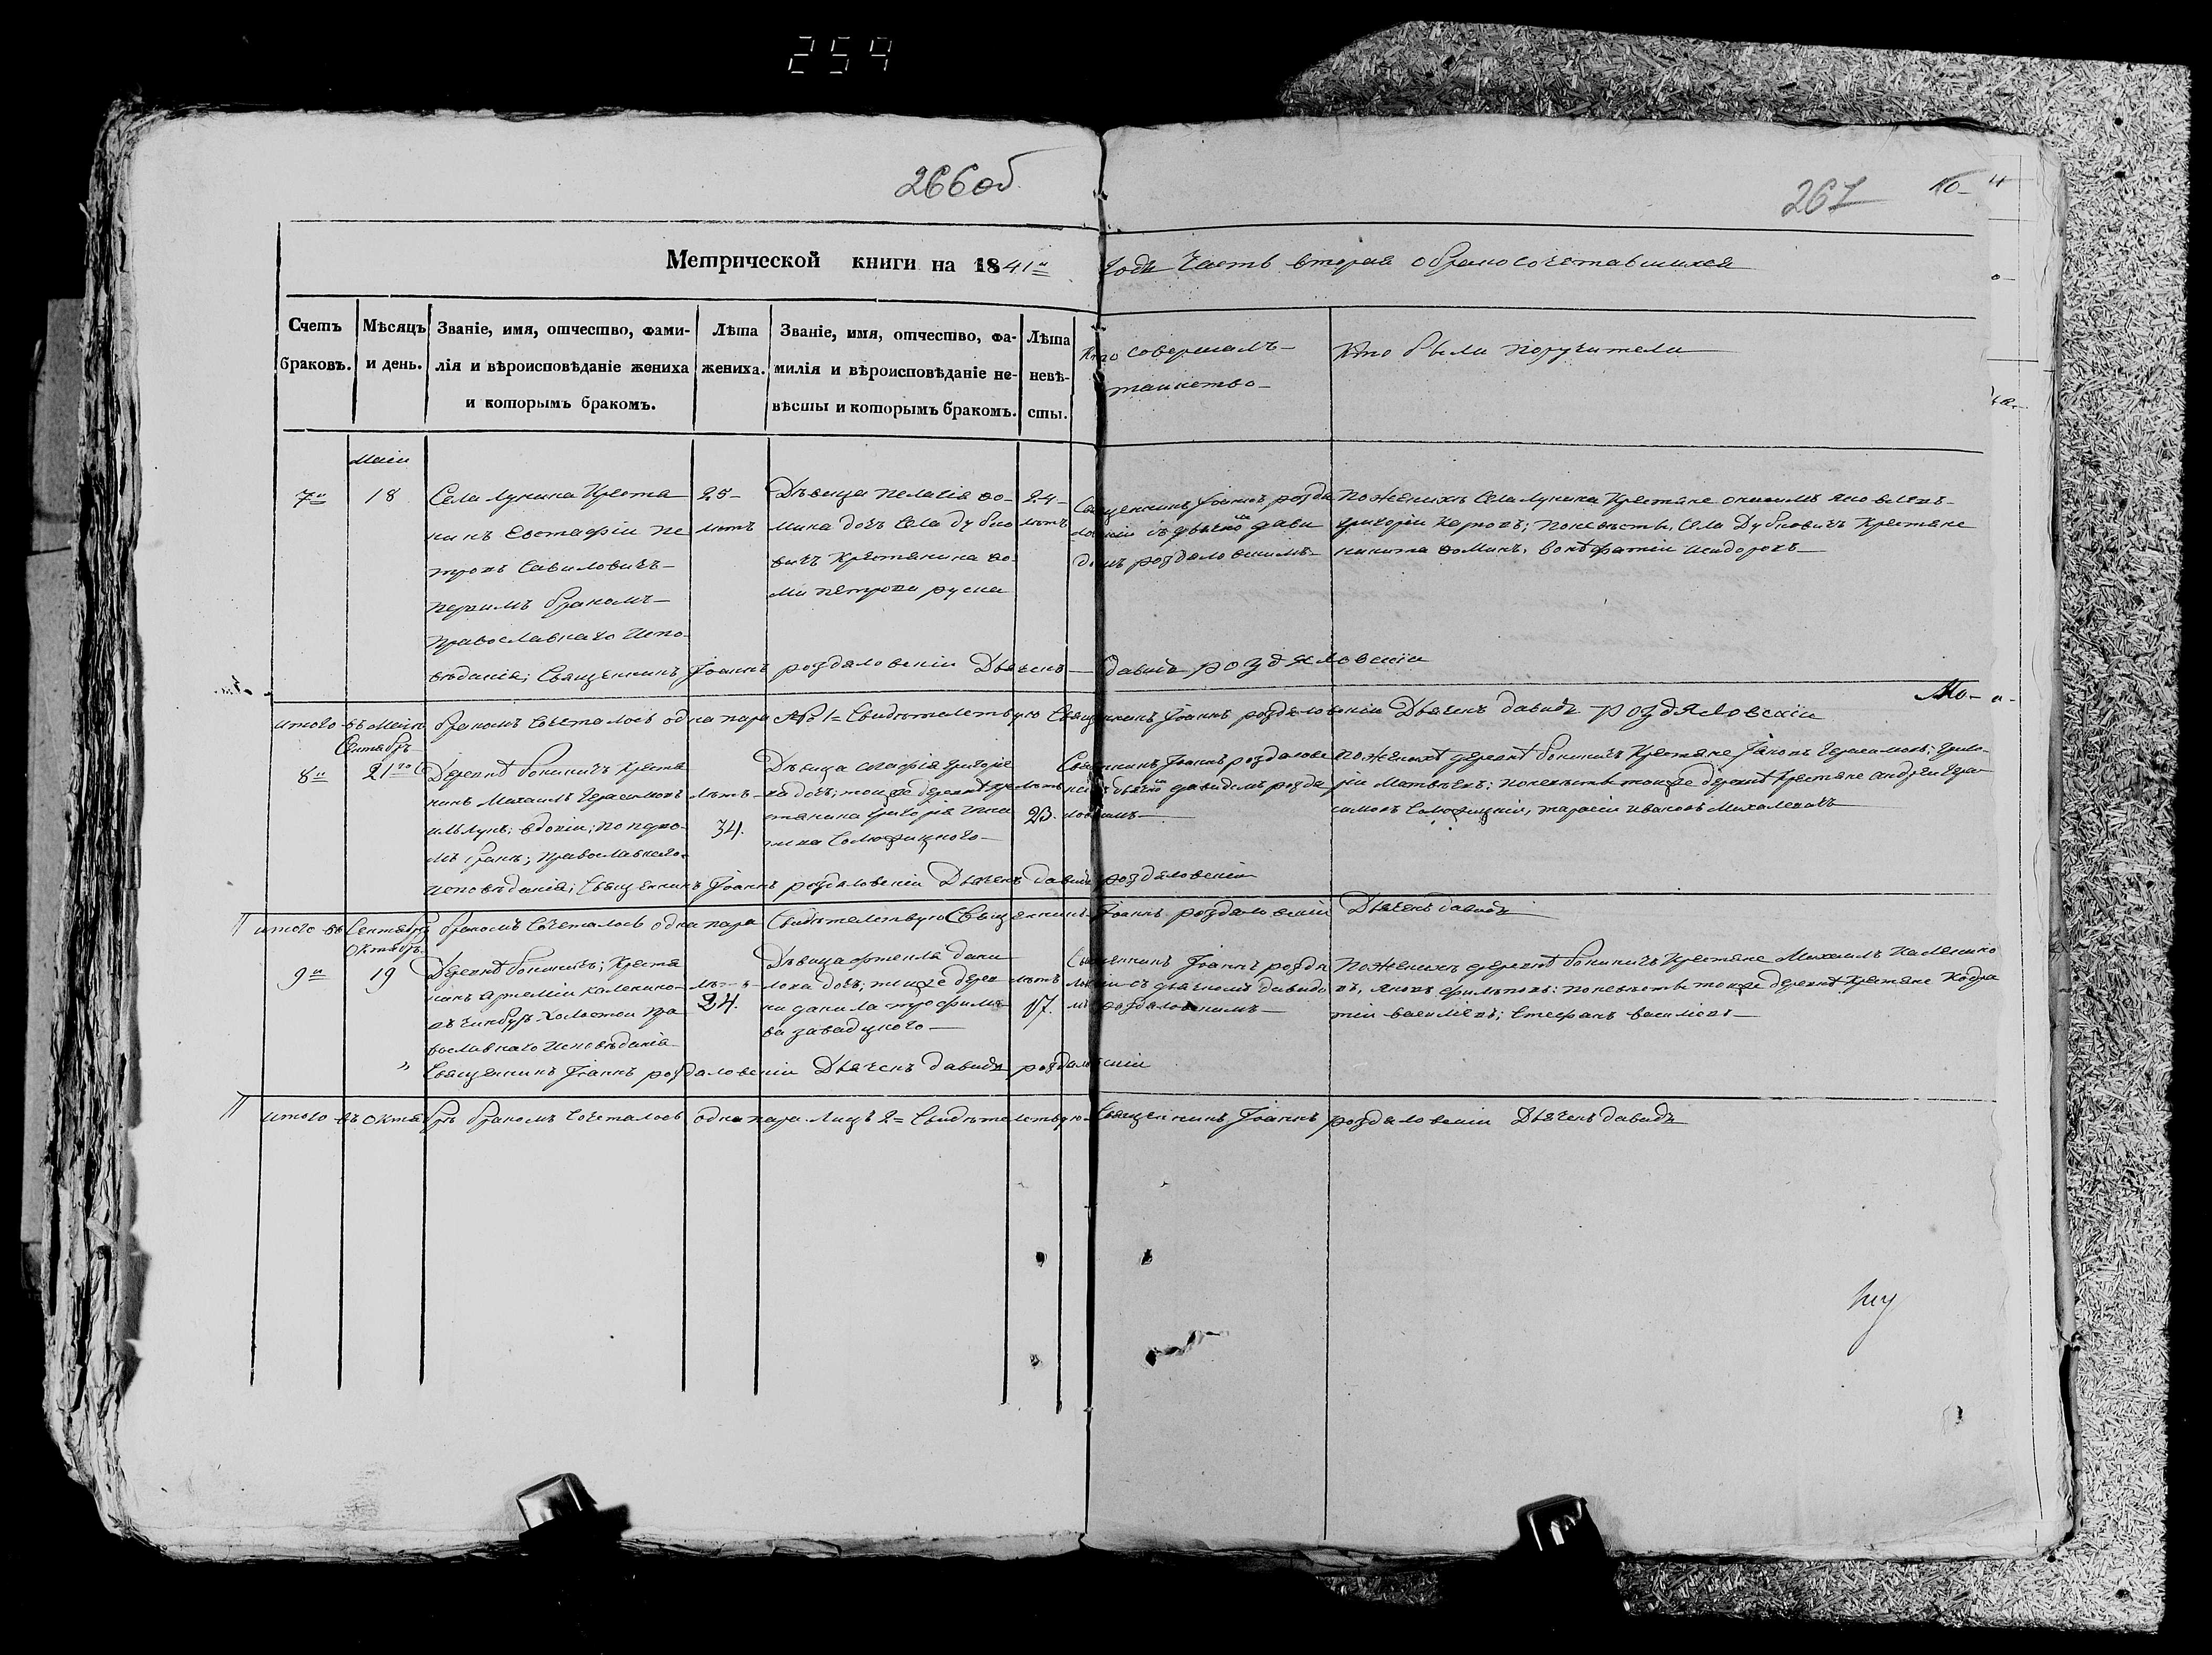 259
266об
267
Метрической книги на 1841й
года Часть вторая о бракосочетавшихся
Счетъ браковъ.
Мѣсяцъ и день.
Званіе, имя, отчество, фами-
лія и вѣроисповѣданіе жениха
и которымъ бракомъ.
Лѣта
жениха.
Званіе, имя, отчество, фа-
милія и вѣроисповѣданіе не-
вѣсты и которымъ бракомъ.
Лѣта
невѣ-
сты.
Кто совершалъ
таинство
Кто были поручители
Маiи
7й
18
Села Лунина Крестя
нинъ Евстафiи Пе
тровъ Савиловичъ
первимъ бракомъ
православнаго испо
вѣданiя; Священникъ Iоаннъ роздяловскiи Дьячекъ давидъ роздяловскiи
25
лѣтъ
Дѣвица Пелагiя Ѳо
мина дочъ Села дубно
вичъ Крестянина Ѳо
ми Петрова руска
24
лѣтъ
Священникъ Iоаннъ роздя
ловскiи съ дьячкомъ дави
домъ роздяловскимъ
По женихѣ Села Лунина Крестяне онисимъ яковлевъ
григорiи Карповъ; по невѣсты, Села Дубновичъ Крестяне
никита Ѳоминъ, вонѣфатiи исидоровъ
итого въ Маiи бракомъ сочеталось одна пара № 1 Свидѣтелствую Священникъ Iоаннъ роздяловскiи Дьячекъ давидъ роздяловскiи
Сентябрь
8й
21го
Деревнѣ боничъ Крестя
нинъ Михаилъ Герасимовъ
вдовiи; по перво
мъ бракѣ; православнаго
исповѣданiя; Священникъ Iоаннъ роздяловскiи Дьячекъ давидъ роздяловскiи
лѣтъ
34.
Дѣвица Софiя григорiе
ва дочъ; тоиже деревнѣ кре
стянина григорiя
лѣтъ
23.
Священникъ Iоаннъ роздяловс
кiи съ дьячко давидомъ роздя
ловскимъ
По женихѣ деревнѣ Крестяне Iаковъ Герасимовъ; григо
рiи Матвѣевъ; по невѣсти тоиже деревнѣ Крестяне андреи Гера
симовъ тарасiи ивановъ Михалевичъ
итого въ Сентябрѣ бракомъ сочеталось одна пара Свидѣтелствую Священникъ Iоаннъ роздяловскiи Дьячекъ давидъ
Октябрь
9й
19
Деревнѣ Крестя
нинъ артемiи каленико
въ холостои пра
вославнаго исповѣданiя
Священникъ Iоаннъ роздяловскiи Дьячекъ давидъ роздяловскiи
лѣтъ
24.
Дѣвица дани
лова дочъ; тоиже дерев
ни данила трофимо
ва завадцкого
лѣтъ
17.
Священникъ Iоаннъ роздя
ловскiи съ дьячкомъ давидо
мъ роздяловскимъ
По женихѣ деревнѣ Крестяне Михаилъ Каленико
въ, яковъ филиповъ; по невѣсти тоиже деревнѣ Крестяне Кодра
тiи василевъ; Стефанъ василевъ
итого въ октябрѣ бракомъ сочеталось одна пара лицъ 2 Свидѣтелствую Священникъ Iоаннъ роздяловскiи Дьячекъ давидъ